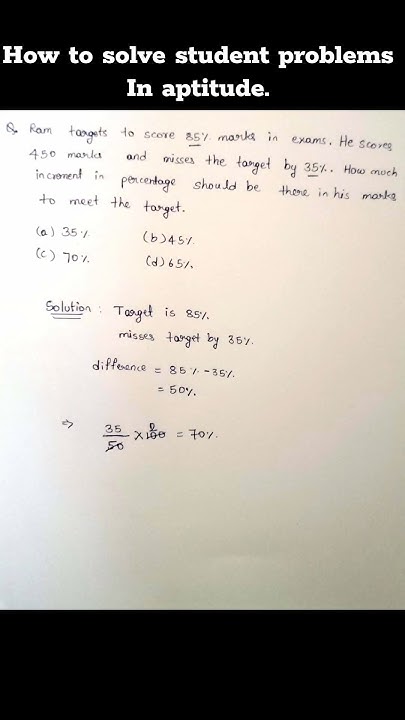 How to solve student problems
In aptitude.
Q. Ram targets to score 85% marks in exams. He scores
450 marks and misses the target by 35%. How much
increment in percentage should be there in his marks
to meet the target.
(a) 35% (b) 45%
(c) 70% (d) 65%
Solution : Target is 85%
misses target by 35%.
difference = 85% - 35%
= 50%
⇒ 35/50 × 100 2 = 70%